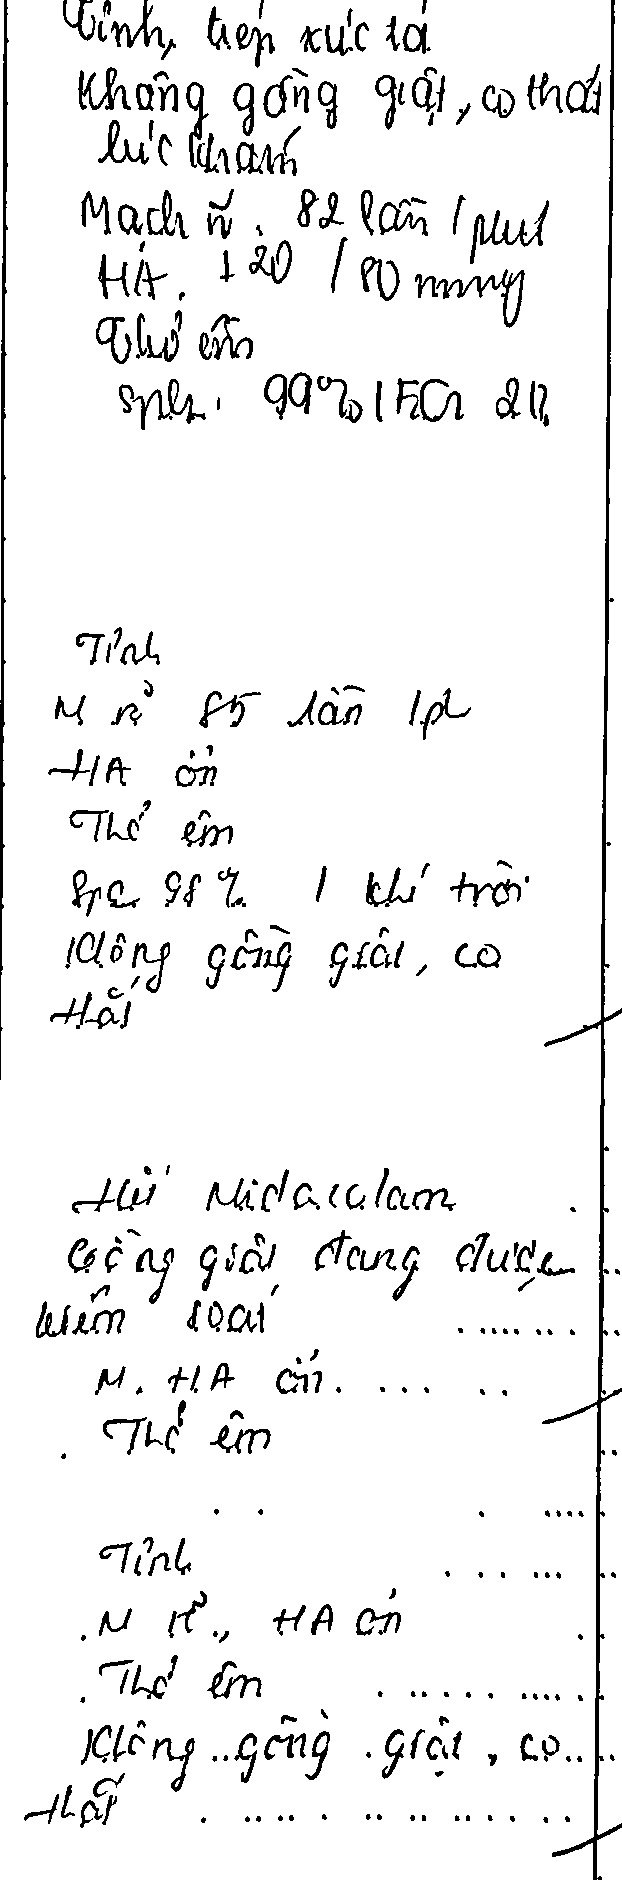 Tỉnh, tiếp xúc tá
Không gồng giật, co thắt
lúc khám
Mạch rõ. 82 lần / phút
HA. 120 / 80 mmHg
Thở êm
SpO2. 99% / FiO2 21%
Tỉnh
M rõ 85 lần /ph
HA ổn
Thở êm
SpO2 98% / khí trời
Không gồng giật, co
thắt
Midazolam
Gồng giật đang được
kiểm soát
M. HA ổn. ... ..
. Thở êm
Tỉnh
.M rõ., HA ổn
. Thở êm
Không ..gồng .giật , co....
thắt